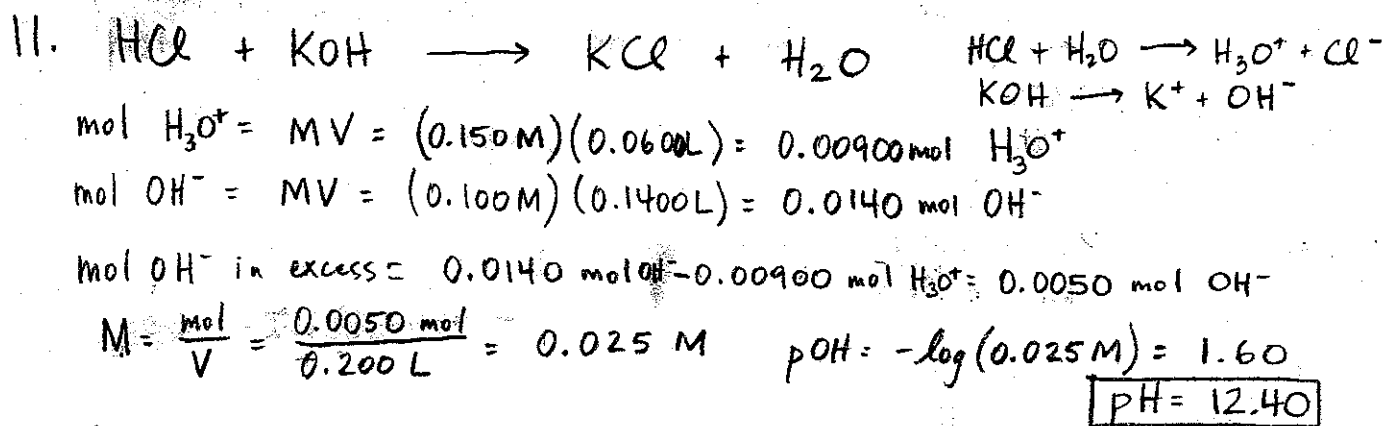 11. HCl + KOH ⟶ KCl + H₂O HCl + H₂O ⟶ H₃O⁺ + Cl⁻
KOH ⟶ K⁺ + OH⁻
mol H₃O⁺ = MV = (0.150 M)(0.0600L) = 0.00900 mol H₃O⁺
mol OH⁻ = MV = (0.100M)(0.1400L) = 0.0140 mol OH⁻
mol OH⁻ in excess = 0.0140 mol OH⁻ - 0.00900 mol H₃O⁺ = 0.0050 mol OH⁻
M = mol/V = 0.0050 mol/0.200 L = 0.025 M pOH = -log(0.025M) = 1.60
pH = 12.40